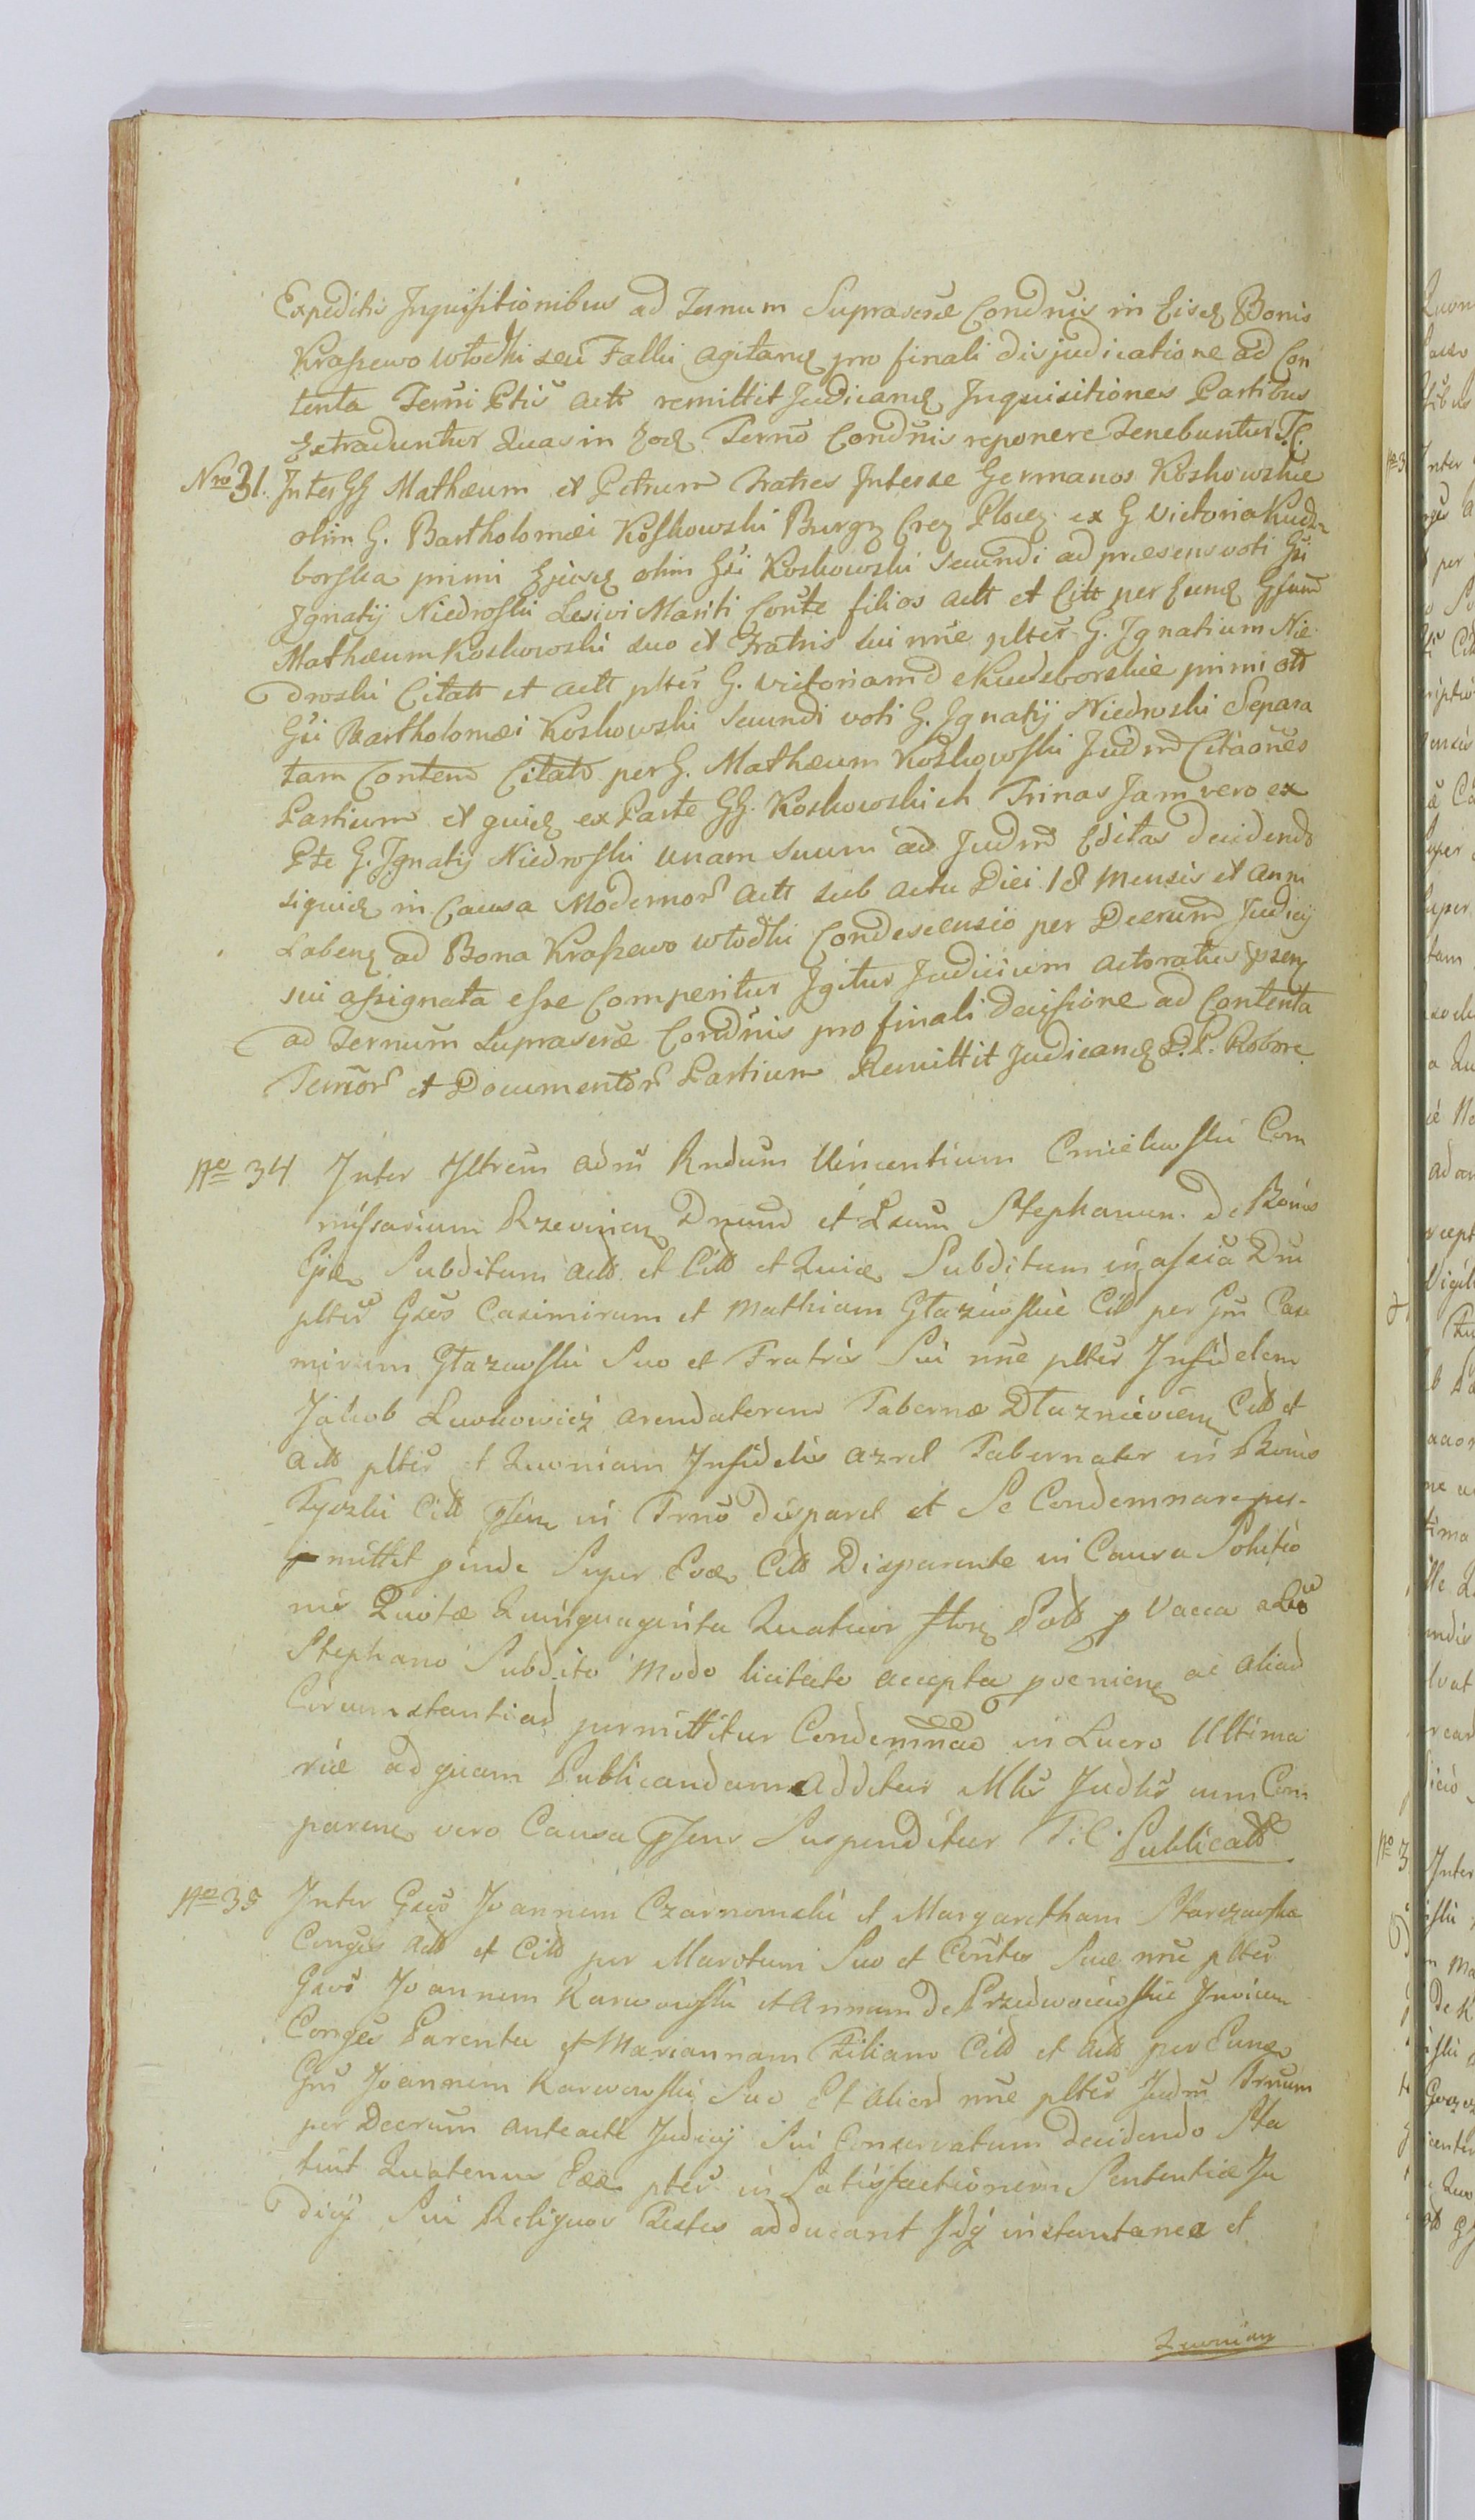 Expeditis Inquisitionibus ad Ternum Suprascræ Condnis in Eisq Bonis
Kraszewo włodki seu Falki agitanq pro finali disjudicatione ad Con
tenta Terni Ptis actt remittit Judicanq Inquisitiones Partibus
Extraduntur Quas in Eoq Terno Condnis reponere tenebuntur T.C.
Nro 31. Inter GG Mathæum et Petrum Fratres Interse Germanos Koskowskie
olim G. Bartholomæi Koskowski Burgq Crcq Plocq ex G Victoria Kude
borska primi Ejusq olim Gsi Koskowski secundi ad præsens voti Gsi
Ignatij Niedroski Lesivi Mariti Conte filios actt et Citt per Eunq Gsum
Mathæum Koskowski suo et Fratris sui nne plter G. Ignatium Nie
droski Citatt et actt plter G. Victoriam d Kudeborskie primi ott
Gsi Bartholomæi Koskowski Secundi voti G. Ignatij Niedroski Separa
tam Contend Citatt per G. Mathæum Koskowski Judm Citaones
Partium et quiq ex Parte GG. Koskowskich Trinas Jam vero ex
Pte G. Ignatij Niedroski unam suum ad Judm Editas decidendo
siquiq in Causa Modernor actt sub actu Diei 18 Mensis et Anni
Labenq ad Bona Kraszewo włodki Condescensio per Decrum Judicij
sui assignata esse Comperitur Igitur Judicium actoratus psenq
ad Ternum suprascræ Condnis pro finali decisione ad Contenta
Ternor et Documentor Partium Remittit Judicanq P.P. Robore
No 34 Inter Illrem adm Rndum Vincentium Cmielewski Com
missarium Rzevinenq Dnum et Lsum Stephanum De Bonis
Ejsq Subditum actt et Citt et Quiq Subditum in assia Dni
plter Gsos Casimirum et Mathiam Głazewskie Citt per Gm Casi
mirum Głazewski Suo et Fratris Sui nne plter Infidelem
Jakob Lewkowicz arendatorem Tabernæ Dłuznieviensq Citt et
actt plter et Quoniam Infidelis azrel Tabernator in Bonis
Tyszki Citt psenq in Trno disparet et Se Condemnare per
mittet pinde Super Eoq Citt Disparente in Causa Solutio
nis Quotæ Quinquaginta Quatuor flor Poll p Vacca aLso
Stephano Subdito modo licitato accepta pvenienq ac aliad
Circumstantiad permittitur Condemnao in Lucro Ultima
rie ad quam Publicandam additur Mlis Judlis cum Com
parenq vero Causa psens Suspenditur T:C: Publicatt
No 35 Inter Gsos Joannem Czarnomski et Margaretham Starczewska
Conges actt et Citt per Maritum Suo et Contes Suæ nne plter
Gsos Joannem Karwowski et Annam de Przedwoiewskie Invicem
Conges Parentes et Mariannam Filiam Citt et actt per Eunq
Gm Joannem Karwowski Suo et alior nne plter Judm Trnum
per Decrum anteacti Judicij Sui Conservatum decidendo Sta
tuit Quatenus Eæq ptes in Satisfactionem Sententiæ Ju
dicij Sui Reliquos Testes adducant instantanea et
Quoniam